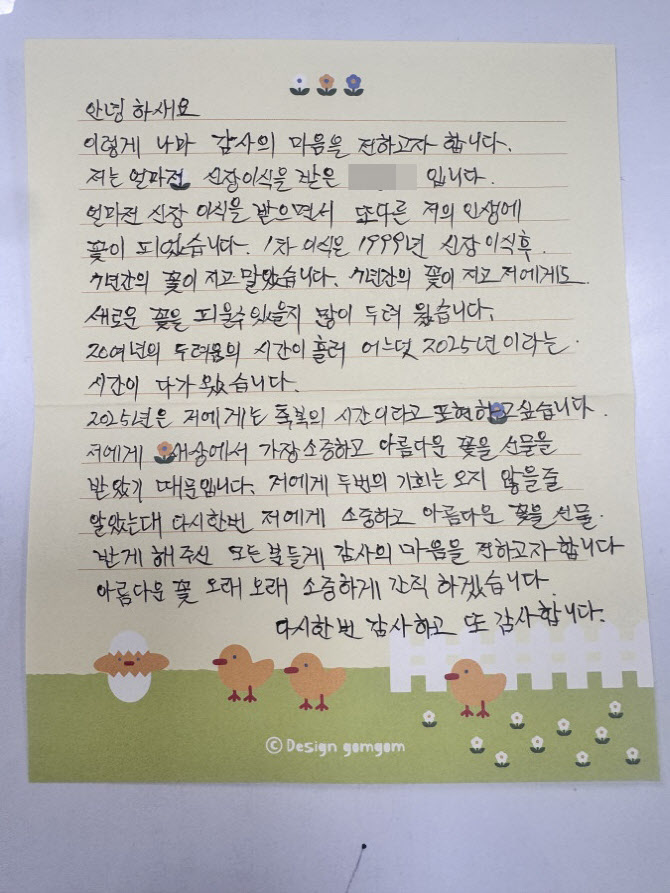 안녕 하세요
이렇게 나마 감사의 마음을 전하고자 합니다.
저는 얼마전 신장이식을 받은 입니다.
얼마전 신장 이식을 받으면서 또다른 저의 인생에
꽃이 피었습니다. 1차 이식은 1999년 신장이식후
7년간의 꽃이 지고 말았습니다. 7년간의 꽃이 지고 저에게도
새로운 꽃을 피울수있을지 많이 두려 웠습니다.
20여년의 두려움의 시간이 흘러 어느덧 2025년 이라는
시간이 다가 왔습니다.
2025년은 저에게는 축복의 시간이라고 표현하고 싶습니다.
저에게 새상에서 가장소중하고 아름다운 꽃을 선물을
받았기 때문입니다. 저에게 두번의 기회는 오지 않을줄
알았는대 다시한번 저에게 소중하고 아름다운 꽃을 선물
받게 해주신 모든분들게 감사의 마음을 전하고자합니다
아름다운 꽃 오래 오래 소중하게 간직 하겠습니다.
다시한번 감사하고 또 감사합니다.
© Design gomgom